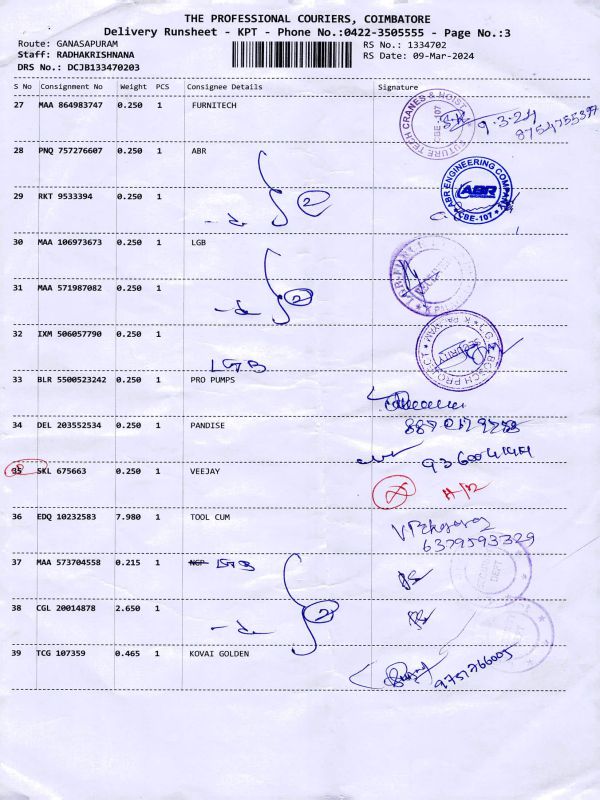 THE PROFESSIONAL COURIERS, COIMBATORE
Delivery Runsheet - KPT - Phone No.:0422-3505555 - Page No.:3
Route: GANASAPURAM RS No.: 1334702
Staff: RADHAKRISHNANA RS Date: 09-Mar-2024
DRS No.: DCJB133470203
S No Consignment No Weight PCS Consignee Details Signature
27 MAA 864983747 0.250 1 FURNITECH
FUTURE TECH CRANES & HOIST CBE-107
9-3-24
28 PNQ 757276607 0.250 1 ABR
ABR ENGINEERING COMPANY ABR CBE-107
29 RKT 9533394 0.250 1
2
30 MAA 106973673 0.250 1 LGB
31 MAA 571987082 0.250 1
2
32 IXM 506057790 0.250 1
LGB
SECURITY
33 BLR 5500523242 0.250 1 PRO PUMPS
34 DEL 203552534 0.250 1 PANDISE
35 SKL 675663 0.250 1 VEEJAY
36 EDQ 10232583 7.980 1 TOOL CUM
6379593329
37 MAA 573704558 0.215 1 NGP LGB
38 CGL 20014878 2.650 1
2
39 TCG 107359 0.465 1 KOVAI GOLDEN
9751766005